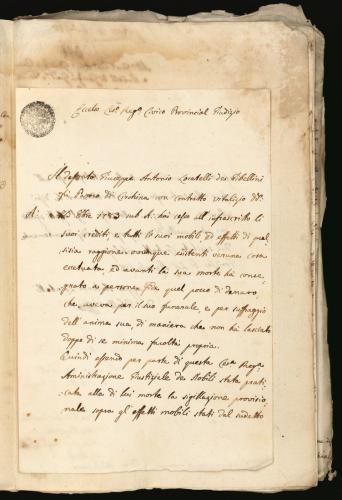 Eccelso Ces. Reg. Civico Provincial Giudizio
Il defonto Giuseppe Antonio Locatelli dei Ghibellini
qm Pietro di con contratto vitalizio dd.
A: 15 8bre 1783 sub A: hà cesso all' infrascritto li
suoi crediti, e tutti li suoi mobili ed effetti di qual
sisia raggione ovunque esistenti veruna cosa
eccetuata, ed avanti la sua morte hà conse
gnato a persona fida quel poco di denaro,
che aveva per il suo funerale, e per suffraggio
dell' anima sua, di maniera che non hà lasciato
doppo di se minima facoltà propria.
Quindi essendo per parte di questa Ces. Reg.
Aministrazione Giustiziale de Nobili stata prati
cata alla di lui morte la sigillazione provisio
nale sopra gl' effetti mobili stati dal sudetto